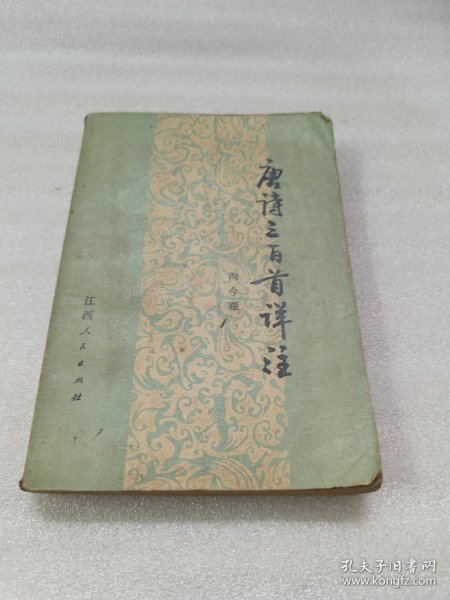 唐诗三百首详注
陶今雁
江西人民出版社
孔夫子旧书网
www.kongfz.com